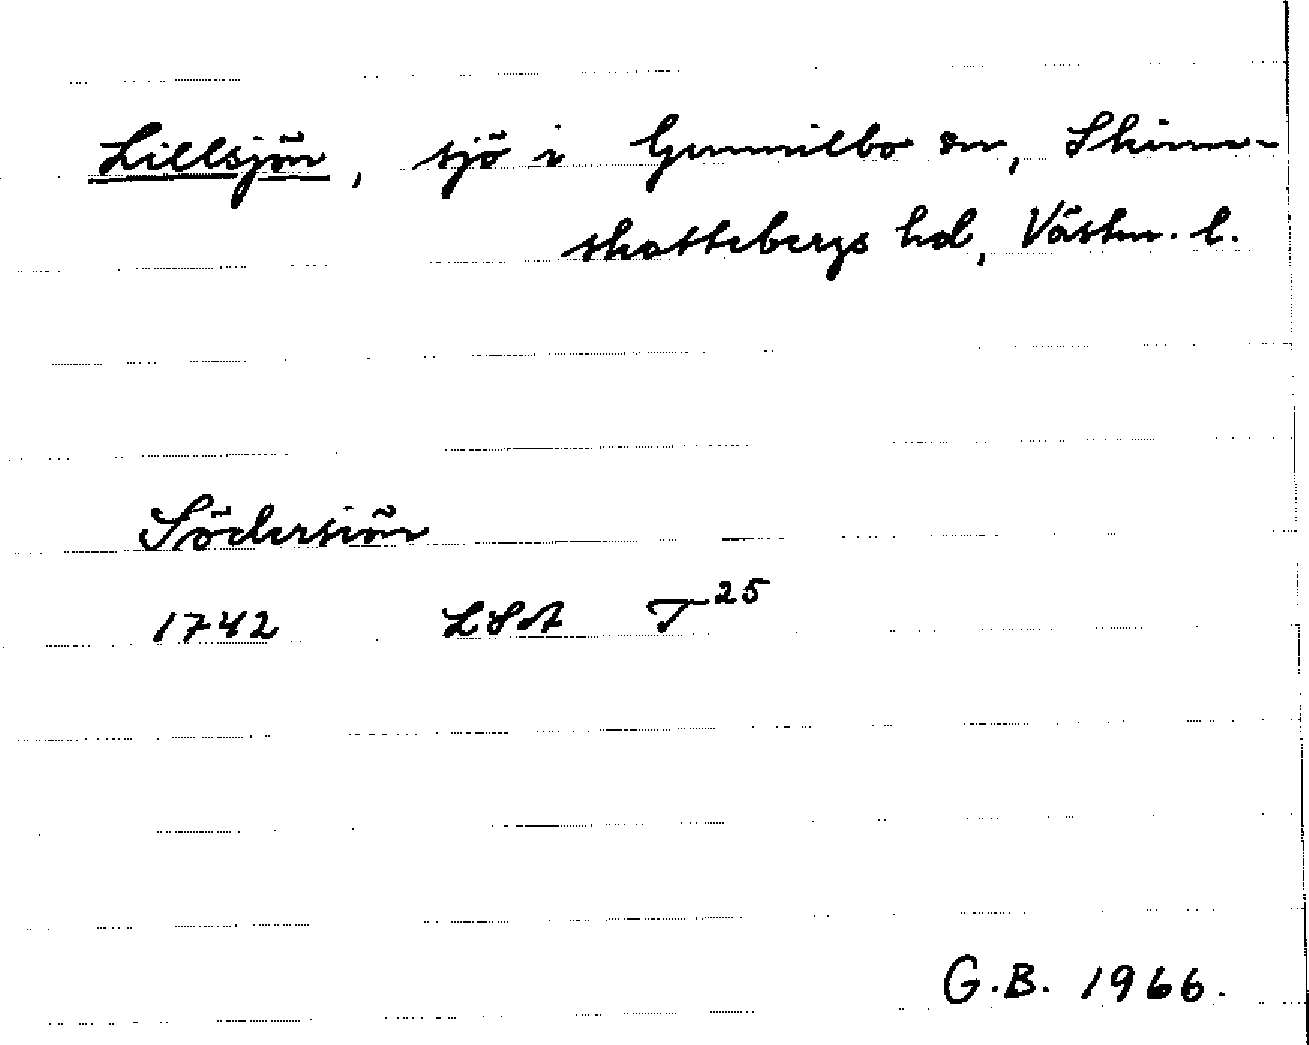 Lillsjön, sjö i Gunnilbo sn, Skinn-
skattebergs hd, Västm. l.
Södersiön
1742 LSA T25
G.B. 1966.